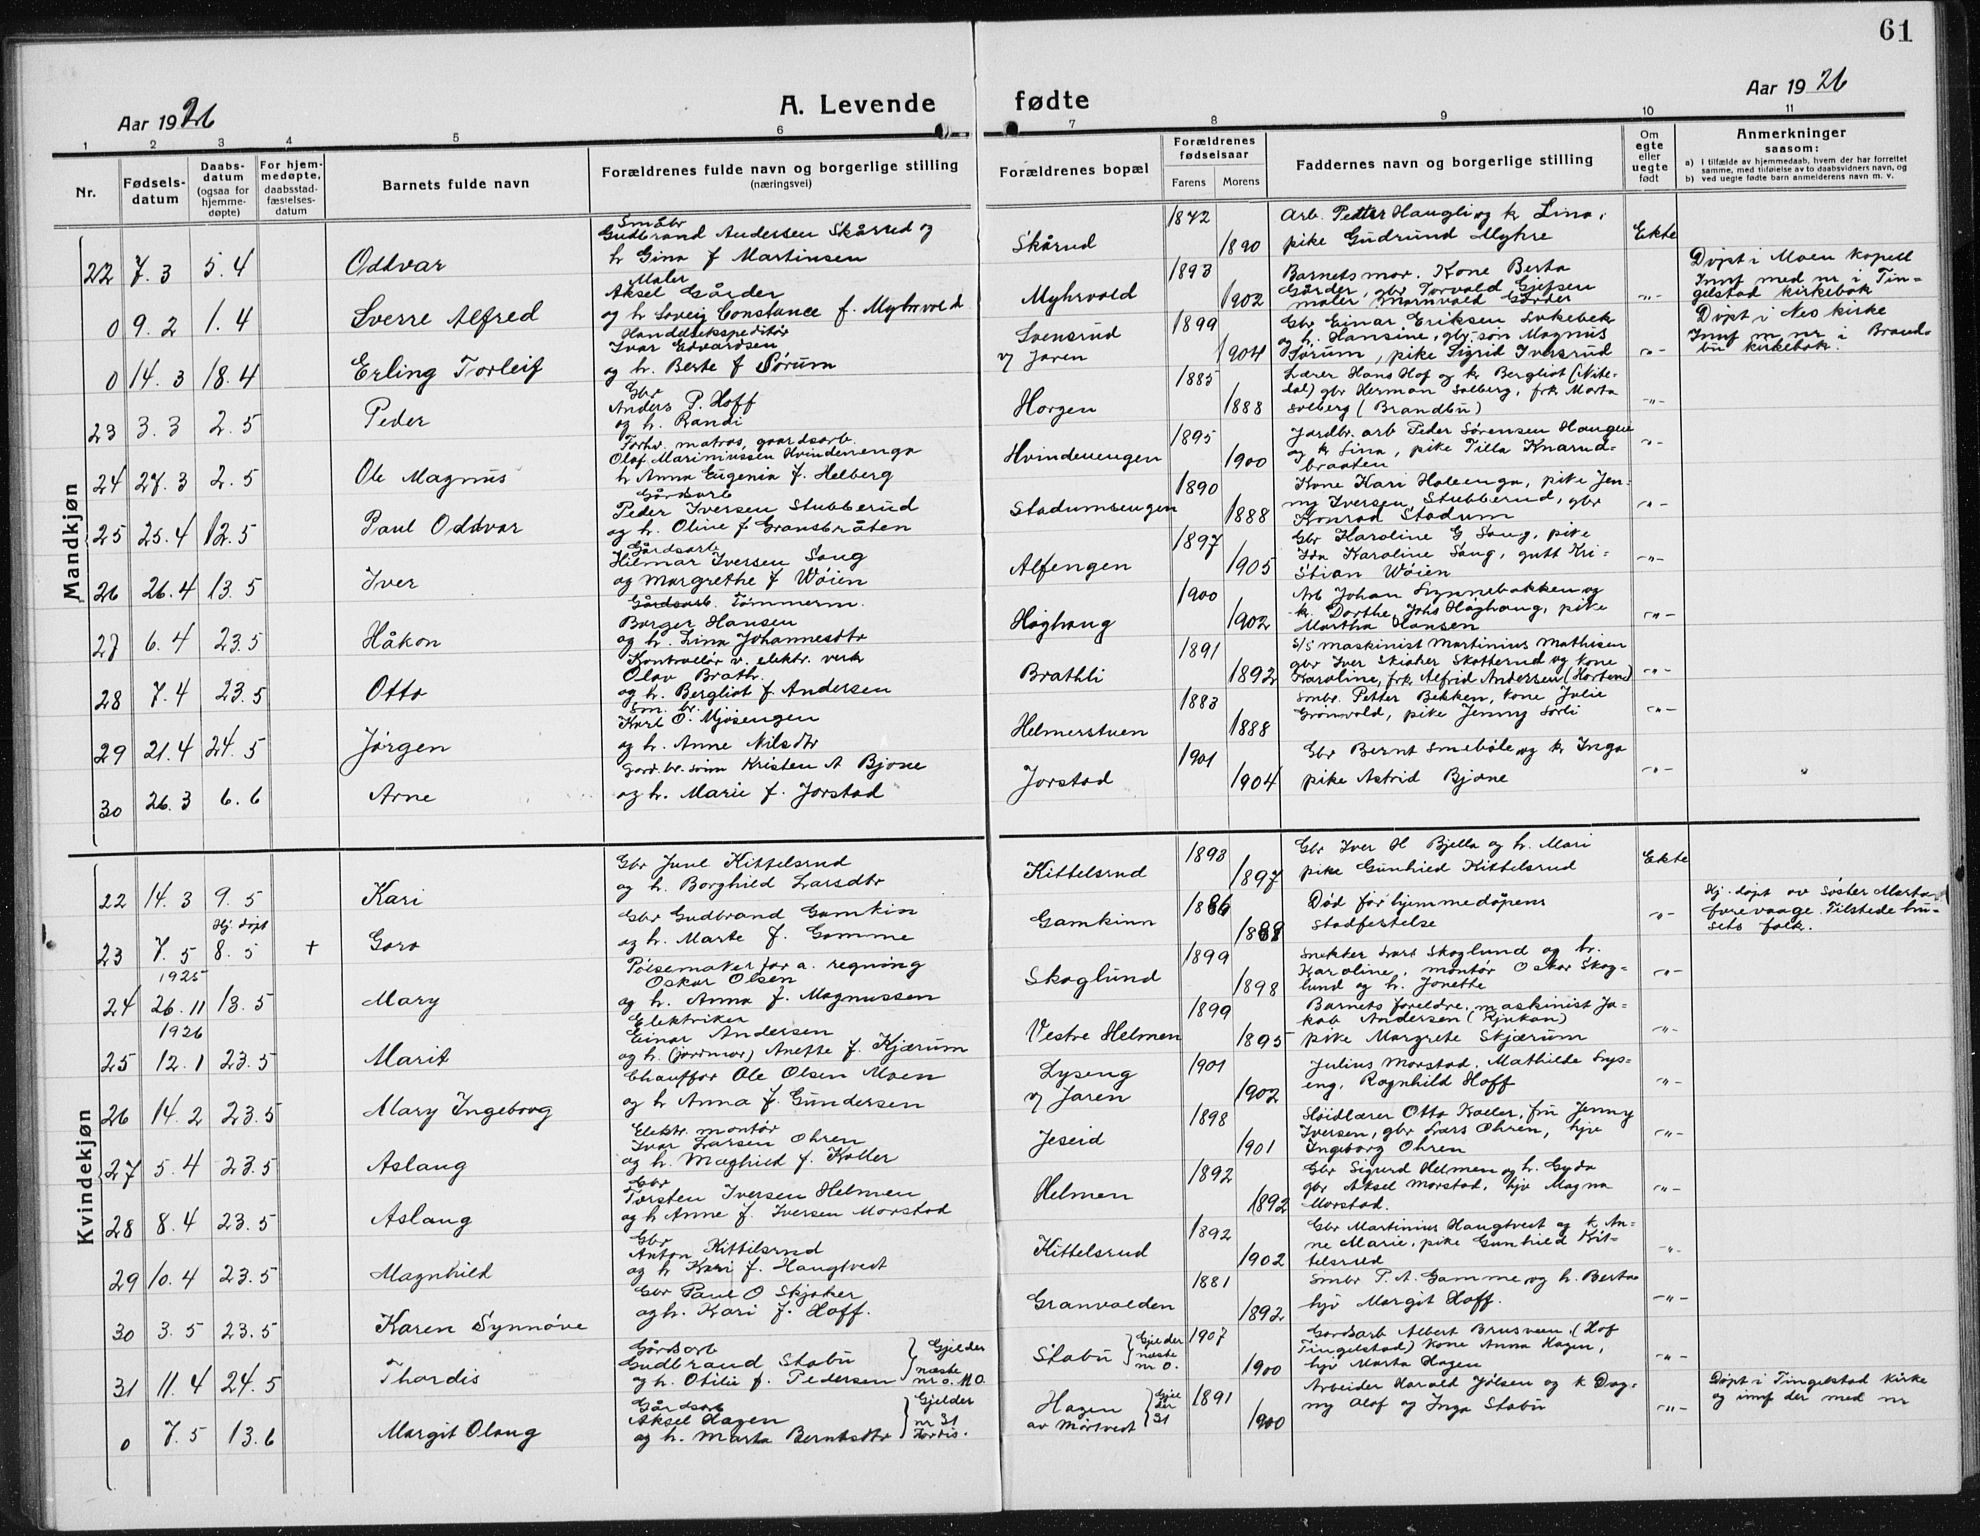 61
Aar 1926
A. Levende fødte
Aar 1926
1 2 3 4 5 6 7 8 9 10 11
Nr.
Fødsels-
datum
Daabs-
datum
(ogsaa for
hjemme-
døpte)
For hjem-
medøpte,
daabsstad-
fæstelses-
datum
Barnets fulde navn
Forældrenes fulde navn og borgerlige stilling
(næringsvei)
Forældrenes bopæl
Forældrenes
fødselsaar
Farens Morens
Faddernes navn og borgerlige stilling
Om
egte
eller
uegte
født
Anmerkninger
saasom:
a) I tilfælde av hjemmedaab, hvem der har forrettet
samme, med tilføielse av to daabsvidners navn, og
b) ved uegte fødte barn anmelderens navn m. v.
Mandkjøn
22 7.3 5.4 Oddvar
Småbr
Gudbrand Andersen Skårud og
h Gina f Martinsen
Skårud 1872 1890
Arb. Petter Haugli og k Lina,
pike Gudrund Myhre
Ekte
0 9.2 1.4 Sverre Alfred
Maler
Aksel Gårder
og h Solveig Constance f. Myhrvold
Myhrvold 1893 1902
Barnets mor. Kone Berta
Gårder, gbr Torvald Gjefsen
maler Mornvald Gårder
-"-
Døpt i Moen kapell
Innf med nr i Tin-
gelstad kirkebok
0 14.3 18.4 Erling Torleif
Handelsekspeditør
Ivar Edvardsen
og h. Berte f Sørum
Svensrud
v/ Jaren 1899 1904
Gbr Einar Eriksen
og h. Hansine, gbr.søn Magnus
Sørum, pike Sigrid Iversrud
-"-
Døpt i Nes kirke
Innf m nr i Brand-
bu kirkebok.
23 3.3 2.5 Peder
Gbr
Anders P. Hoff
og h. Randi
Horgen 1885 1888
Lærer Hans Hof og k Bergliot (Nite-
dal) gbr Herman Solberg, frk Marta
Solberg (Brandbu)
-"-
24 27.3 2.5 Ole Magnus
Forhv. matros, gaardsarb.
Olaf Marinius­sen Hvindenenga
h Anna Eugenia f. Helberg
Hvindenengen 1895 1900
Jordbr. arb Peder Sørensen Haugen
og k Lina, pike Tilla Knarud-
braaten
-"-
25 25.4 12.5 Paul Oddvar
Gårdsarb
Peder Iversen Stubberud
og h. Oline f Gransbråten
Stadumsengen 1890 1888
Kone Kari Holeenga, pike Jen-
ny Iversen Stubberud, gbr
Konrad Stadum
-"-
26 26.4 13.5 Iver
Gårdsarb
Hilmar Iversen Sang
og Margrethe f Wøien
Alfengen 1897 1905
Gbr Karoline G Sang, pike
Ida Karoline Sang, gutt Kri-
stian Wøien
-"-
27 6.4 23.5 Håkon
Gårdsarb. Tømmerm.
Borger Hansen
og h. Lina Johannesdtr
Høghaug 1900 1902
Arb Johan Lynnebakken og
k. Dorthe Johs Høghaug, pike
Martha Hansen
-"-
28 7.4 23.5 Otto
Kontrollør v. elektr. verk
Olav Brath.
og h. Bergliot f. Andersen
Brathli 1891 1892
S/S maskinist Martinius Mathisen
gbr Iver Skiaker Skatterud og kone
Karoline, frk. Alfrid Andersen (Horten)
-"-
29 21.4 24.5 Jørgen
Sm. br.
Karl O. Mjøsengen
og h. Anne Nilsdtr
Helmerstuen 1883 1888
Smbr. Petter Bekken, kone Julie
Grønvold, pike Jenny Sørli
-"-
30 26.3 6.6 Arne
Gard.br.sønn Kristen A Bjone
og h. Marie f. Jorstad
Jorstad 1901 1904
Gbr Bernt Smebøle og k Inga
pike Astrid Bjone
-"-
Kvindekjøn
22 14.3 9.5 Kari
Gbr Juul Kittelsrud
og h. Borghild Larsdtr
Kittelsrud 1893 1897
Gbr Iver H Bjella og h. Mari
pike Gunhild Kittelsrud
Ekte
23 7.5 Hj. døpt 8.5 + Goro
Gbr Gudbrand Gamkin
og h. Marte f. Gamme
Gamkinn 1886 1888
Død før hjemmedåpens
stadfestelse
-"-
Hj. døpt av søster Marta
Forevaage. Tilstede hu-
sets folk.
24 1925 26.11 13.5 Mary
Pølsemaker for a. regning
Oskar Olsen
og h. Anna f. Magnussen
Skoglund 1899 1898
Snekker Lars Skoglund og h.
Karoline, montør Oskar Skog-
lund og h. Jonette
-"-
25 1926 12.1 23.5 Marit
Elektriker
Einar Andersen
og h. (jordmor) Anette f. Kjærum
Vestre Helmen 1899 1895
Barnets foreldre, maskinist Ja-
kob Andersen (Rjukan)
pike Margrete Skjærum
-"-
26 14.2 23.5 Mary Ingeborg
Chauffør Ole Olsen Moen
og h Anna f. Gundersen
Lyseng
v/ Jaren 1901 1902
Julius Morstad, Mathilde Lys-
eng, Ragnhild Hoff
-"-
27 5.4 23.5 Aslaug
Elektr. montør
Ivar Larsen Ohren
og h. Maghild f. Koller
Jeseid 1898 1901
Høidlærer Otto Koller, fru Jenny
Iversen, gbr Lars Ohren, hjv
Ingeborg Ohren
-"-
28 8.4 23.5 Aslaug
Gbr
Torsten Iversen Helmen
og h Anne f. Iversen Morstad
Helmen 1892 1892
Gbr Sigurd Helmen og h. Gyda
gbr Aksel Morstad, hjv Magna
Morstad.
-"-
29 10.4 23.5 Magnhild
Gbr
Anton Kittilsrud
og h Kari f. Haugtvedt
Kittelsrud 1892 1902
Gbr Martinius Haugtvedt og k An-
ne Marie, pike Gunhild Kit-
telsrud
-"-
30 3.5 23.5 Karen Synnøve
Gbr Paul O Skjaker
og h. Kari f. Hoff.
Granvolden 1881 1892
Smbr P. A. Gamme og h. Berta
hjv Margit Hoff.
-"-
31 11.4 24.5 Thordis
Gårdsarb
Gudbrand Stabu
og h. Otilie f. Pedersen
Gjelder
næste
nr 0. No.
Stabu
Gjelder
næste
nr 0.
1907 1900
Gardsarb Albert Brusveen (Hof
Tingelstad) kone Anna Hagen,
hjv Marta Hagen
-"-
0 7.5 13.6 Margit Olaug
Gårdsarb
Aksel Hagen
og h. Marta Berntsdtr
Gjelder
nr 31
Tordis.
Hagen
av Mørtvedt
Gjel
der
31
1891 1900
Arbeider Harald Jølsen og k Dag-
ny Olaf og Inga Stabu
-"-
Døpt i Tingelstad kirke
og innf der med nr